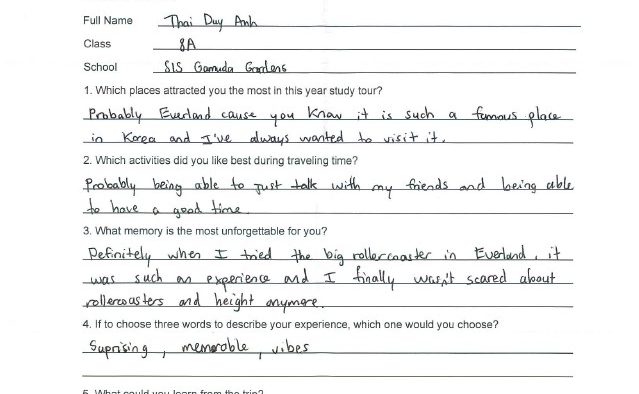 Full Name Thai Duy Anh
Class 8A
School SIS Gamuda Gardens
1. Which places attracted you the most in this year study tour?
Probably Everland cause you know it is such a famous place
in Korea and I've always wanted to visit it.
2. Which activities did you like best during traveling time?
Probably being able to just talk with my friends and being able
to have a good time
3. What memory is the most unforgettable for you?
Definitely when I tried the big rollercoaster in Everland, it
was such an experience and I finally wasn't scared about
rollercoasters and height anymore.
4. If to choose three words to describe your experience, which one would you choose?
Suprising, memorable, vibes
5. What could you learn from the trip?